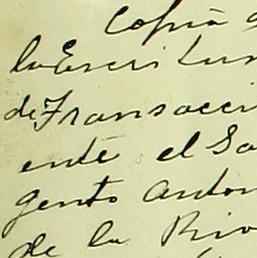 Copia d
la Escritur
de Transacci
ente el Sa
gento Anton
de la Riv